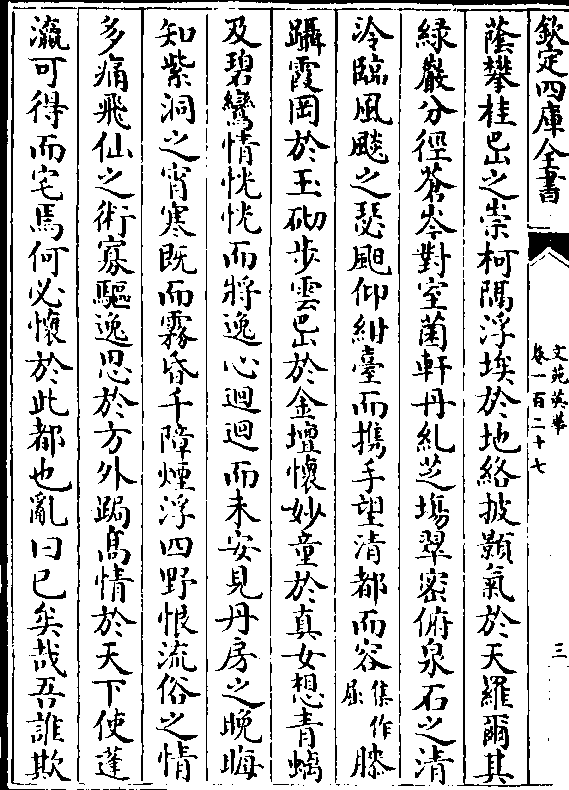 欽定四庫全書
文苑英華
卷一百二十七
三
蔭攀桂岊之崇柯隅浮埃於地絡披顥氣於天羅爾其
緑巖分徑蒼岑對室菌軒丹糺芝塲翠密俯泉石之清
泠臨風飈之瑟䬆仰紺臺而携手望清都而容集作屈膝
躡霞岡於玉砌步雲岊於金壇懷妙童於真女想青螭
及碧鸞情恍恍而將逸心迴迴而未安見丹房之晚晦
知紫洞之宵寒既而霧昏千障煙浮四野恨流俗之情
多痛飛仙之術寡驅逸思於方外跼髙情於天下使蓬
瀛可得而宅焉何必懷於此都也亂曰已矣哉吾誰欺